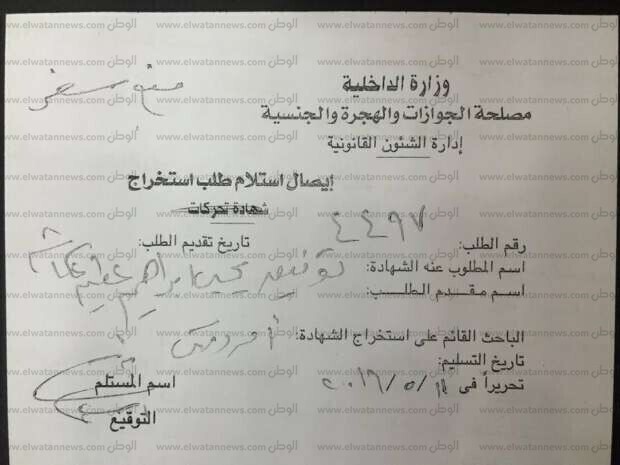 منع سفر
وزارة الداخلية
مصلحة الجوازات والهجرة والجنسية
إدارة الشئون القانونية
إيصال استلام طلب استخراج
شهادة تحركات
رقم الطلب: ٤٤٩٧ تاريخ تقديم الطلب:
اسم المطلوب عنه الشهادة: توفيق يحيى ابراهيم
اسم مقدم الطلب:
الباحث القائم على استخراج الشهادة:
تاريخ التسليم:
تحريراً فى ٢٠١٦/٥/
اسم المستلم
التوقيع
الوطن www.elwatannews.com